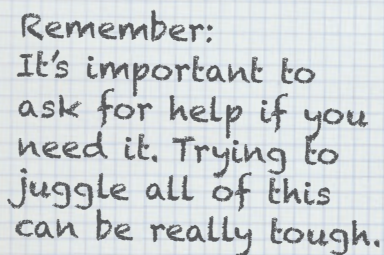 Remember:
It's important to
ask for help if you
need it. Trying to
juggle all of this
can be really tough.